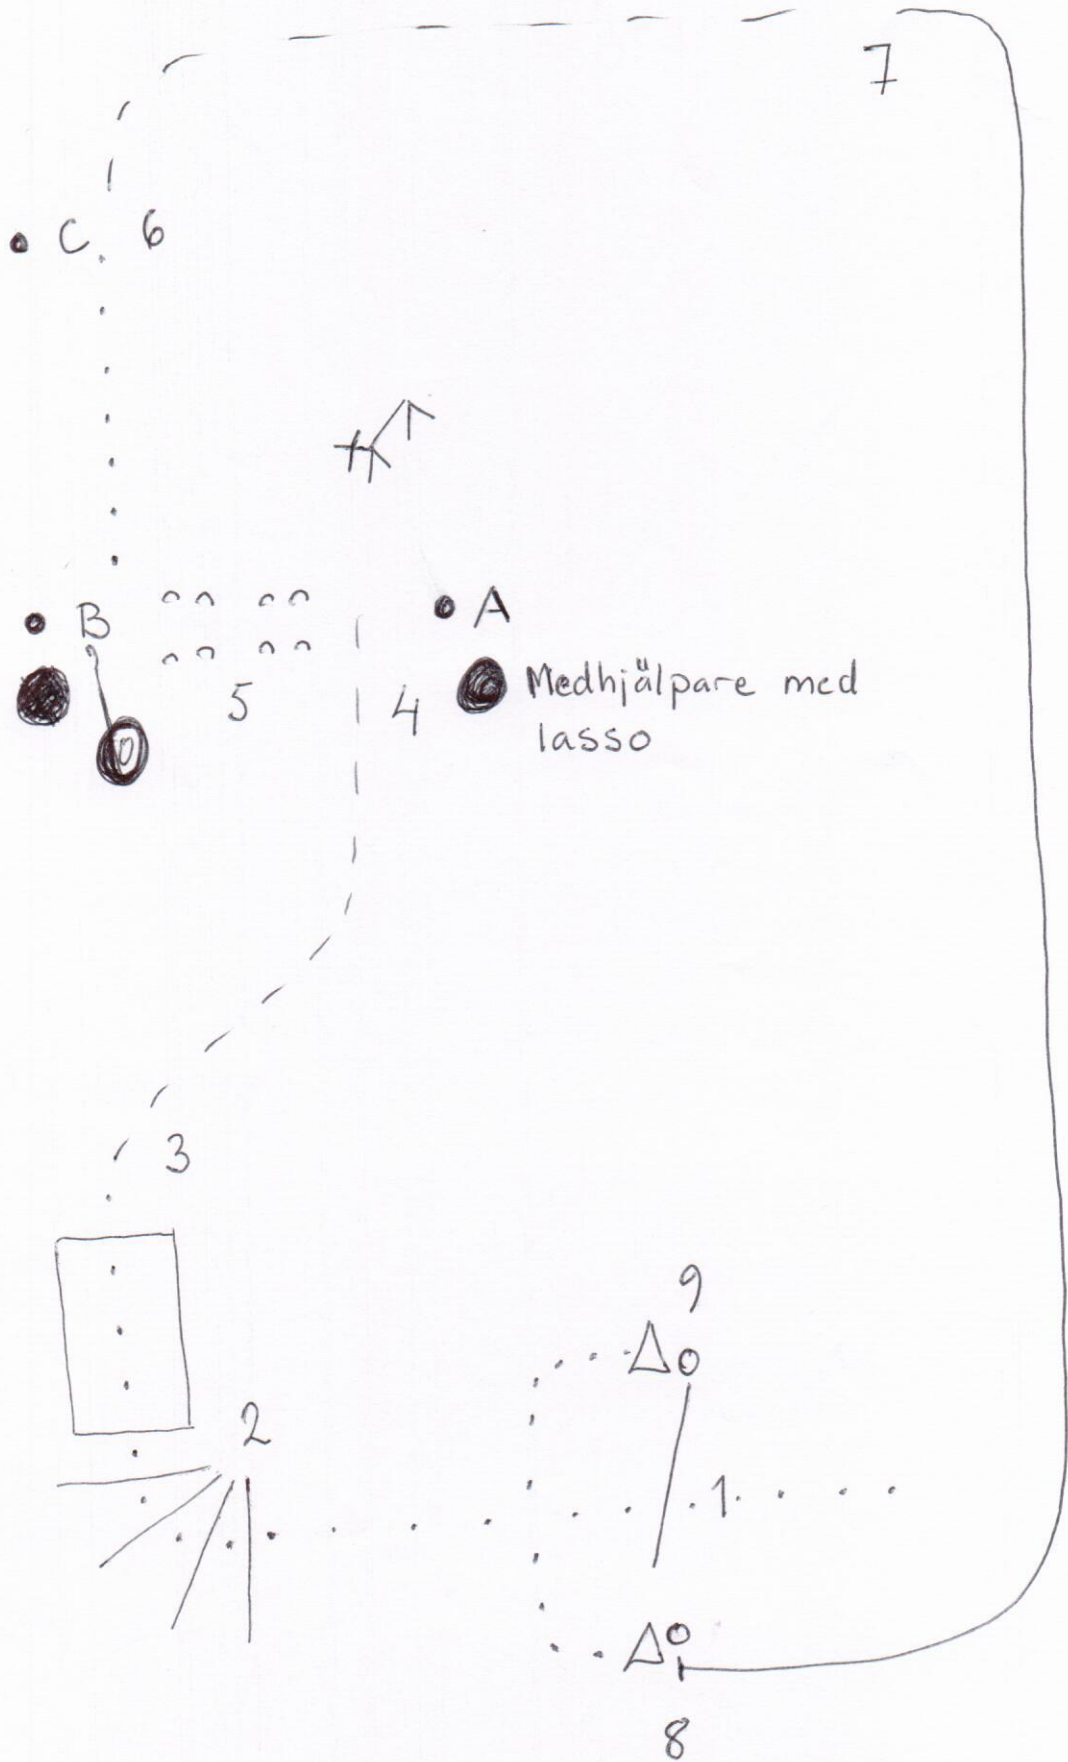 7
C 6
A
B
5
4
Medhjälpare med
lasso
3
9
2
1
8